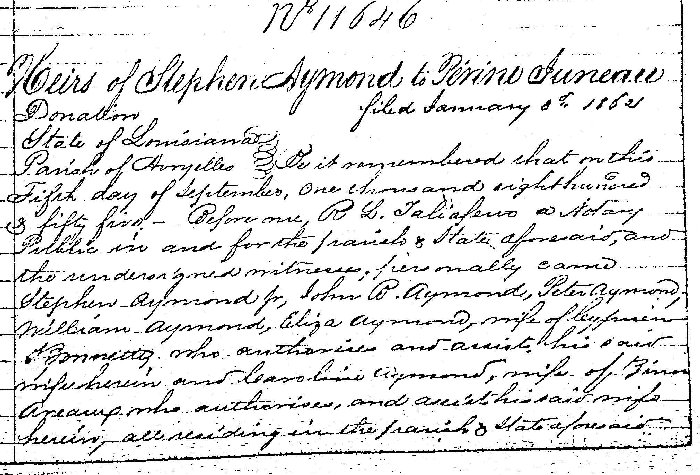 No 11646
Heirs of Stephen Aymond to Périne Juneau
Donation filed January 8th 1862
State of Louisiana
Parish of Avoyelles Be it remembered that on this
Fifth day of September, one thousand eight hundred
& fifty five, – Before me, R L. Taliaferro a Notary
Public in and for the parish & State aforesaid, and
the undersigned witnesses, personally came
Stephen Aymond Jr, John B. Aymond, Peter Aymond,
William Aymond, Eliza Aymond, wife of
Bonnette who authorises and assist, his said
wife herein and Caroline Aymond, wife of
Areaux who authorises, and assist his said wife
herein, all residing in the parish & State aforesaid